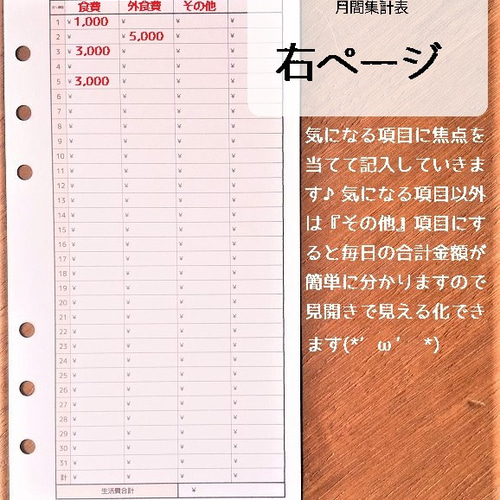 月間集計表
右ページ
食費 外食費 その他
1 ¥1,000 ¥ ¥ ¥
2 ¥ ¥5,000 ¥ ¥
3 ¥3,000 ¥ ¥ ¥
4 ¥ ¥ ¥ ¥
5 ¥3,000 ¥ ¥ ¥
6 ¥ ¥ ¥ ¥
7 ¥ ¥ ¥ ¥
8 ¥ ¥ ¥ ¥
9 ¥ ¥ ¥ ¥
10 ¥ ¥ ¥ ¥
11 ¥ ¥ ¥ ¥
12 ¥ ¥ ¥ ¥
13 ¥ ¥ ¥ ¥
14 ¥ ¥ ¥ ¥
15 ¥ ¥ ¥ ¥
16 ¥ ¥ ¥ ¥
17 ¥ ¥ ¥ ¥
18 ¥ ¥ ¥ ¥
19 ¥ ¥ ¥ ¥
20 ¥ ¥ ¥ ¥
21 ¥ ¥ ¥ ¥
22 ¥ ¥ ¥ ¥
23 ¥ ¥ ¥ ¥
24 ¥ ¥ ¥ ¥
25 ¥ ¥ ¥ ¥
26 ¥ ¥ ¥ ¥
27 ¥ ¥ ¥ ¥
28 ¥ ¥ ¥ ¥
29 ¥ ¥ ¥ ¥
30 ¥ ¥ ¥ ¥
31 ¥ ¥ ¥ ¥
計 ¥ ¥ ¥ ¥
生活費合計 ¥
気になる項目に焦点を
当てて記入していきま
す♪ 気になる項目以外
は『その他』項目にす
ると毎日の合計金額が
簡単に分かりますので
見開きで見える化でき
ます(*’ω’ *)